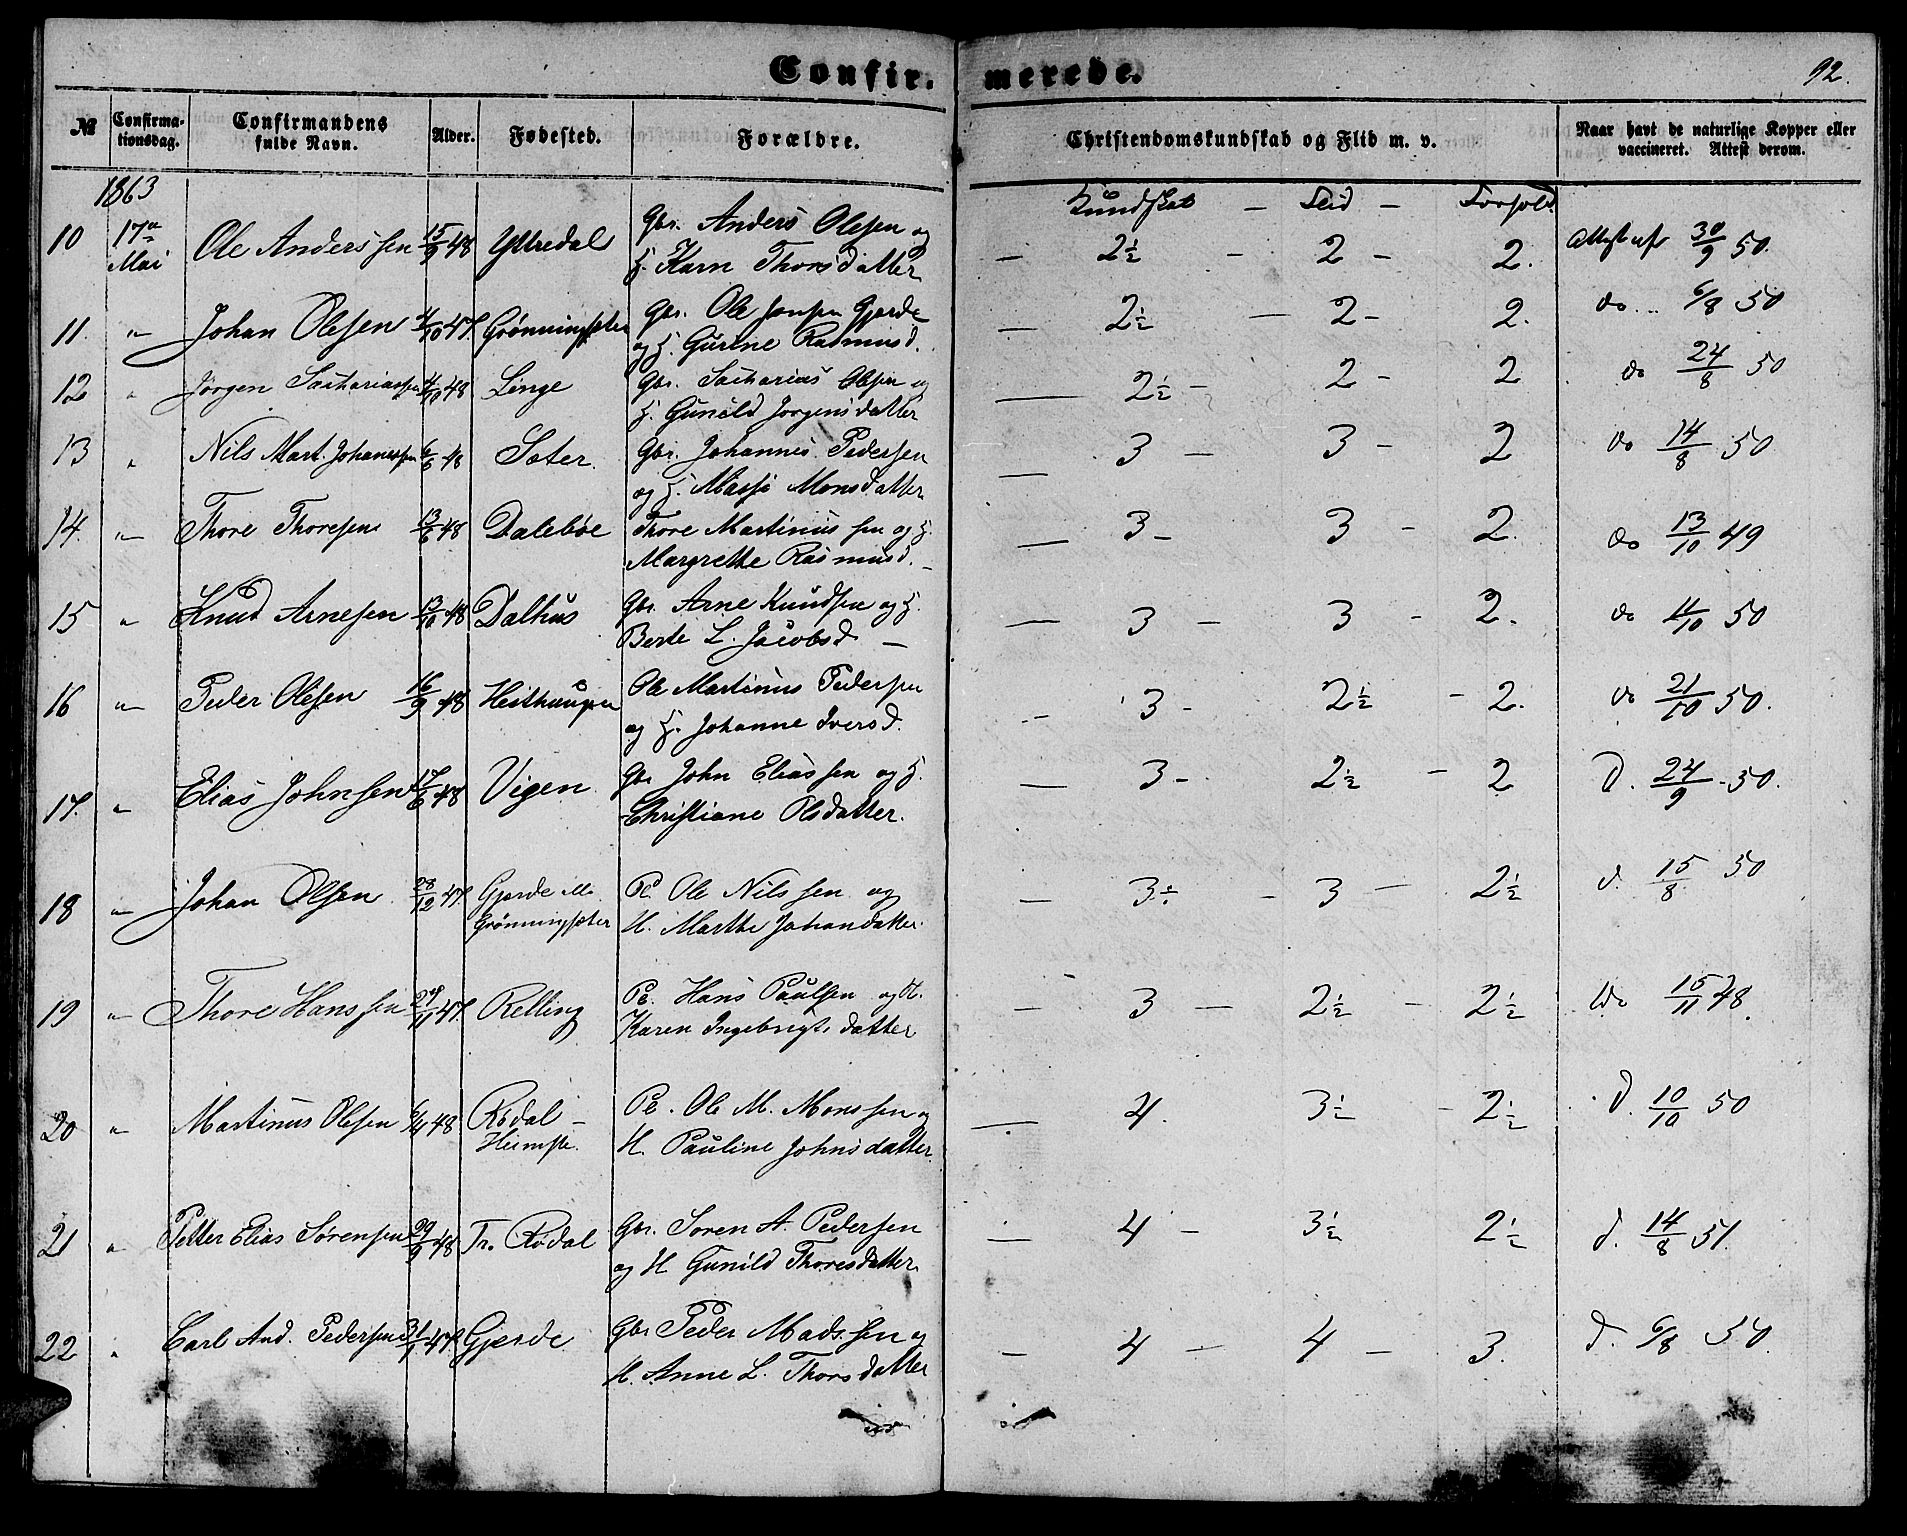 Confirmerede.
92.
№ Confirmationsdag. Confirmandens fulde Navn. Alder. Fødested. Forældre. Christendomskundskab og Flid m. v. Naar havt de naturlige Kopper eller vaccineret. Attest derom.
1863 Kundskab - Flid - Forhold
10 17de Mai Ole Anderssen 15/9 48 Yttredal Gbr. Anders Olesen og H. Karn Thorsdatter - 2½ - 2 - 2. Attest af 30/9 50.
11. " Johan Olesen 47. Grønningsæter Gbr. Ole Jonsen Gjerde og H. Gurine Rasmusd. - 2½ - 2 - 2. do 6/8 50
12 " Jørgen Sachariassen 48 Linge Gbr. Sacharias Olsen og H. Gunild Jørgensdatter - 2½ - 2 - 2 do 24/8 50
13 " Nils Mart. Johanessen 6/6 48 Sæter. Gbr. Johannes Pedersen og H. Massi Monsdatter - 3 - 3 - 2 do 14/8 50
14. " Thore Thoresen 13/6 48 Dalebøe Thore Martinussen og H. Margrethe Rasmusd. - 3 - 3 - 2. do 13/10 49
15 " Knud Arnesen 13/10 48 Dalhus Gbr. Arne Knudsen og H. Berte L. Jacobsd - 3 - 3 - 2. do 50
16 " Peder Olesen 16/9 48 Heithaugen Ole Martinus Pedersen og H. Johanne Iversd. - 3 - 2½ - 2. do 21/10 50.
17. " Elias Johnsen 17/6 48 Vigen Gbr John Eliassen og H. Christiane Olsdatter. - 3 - 2½ - 2 D. 24/9 50.
18 " Johan Olsen 28/12 47. Gjerde ell. Grønningsæter Pl. Ole Nilssen og H. Marthe Johandatter. - 3½ - 3 - 2½ d. 15/8 50
19 " Thore Hanssen 11 47. Relling Pl. Hans Paulsen og H. Karen Ingebrigtsdatter - 3 - 2½ - 2½ do 15/11 48.
20 " Martinus Olesen 6/4 48 Rødal - Pl. Ole M. Monssen og H. Pauline Johnsdatter. - 4. 3½ - 2½ D. 10/10 50
21 " Petter Elias Sørensen 29/9 48 Fr. Rødal Gbr. Søren A. Pedersen og H Gunild Thoresdatter. - 4 - 3½ 2½ d. 14/8 51.
22 " Carl And. Pedersen 31/1 47. Gjerde Gbr Peder Madssen og H. Anne L. Thorsdatter - 4 - 4 - 3. d. 6/8 50.